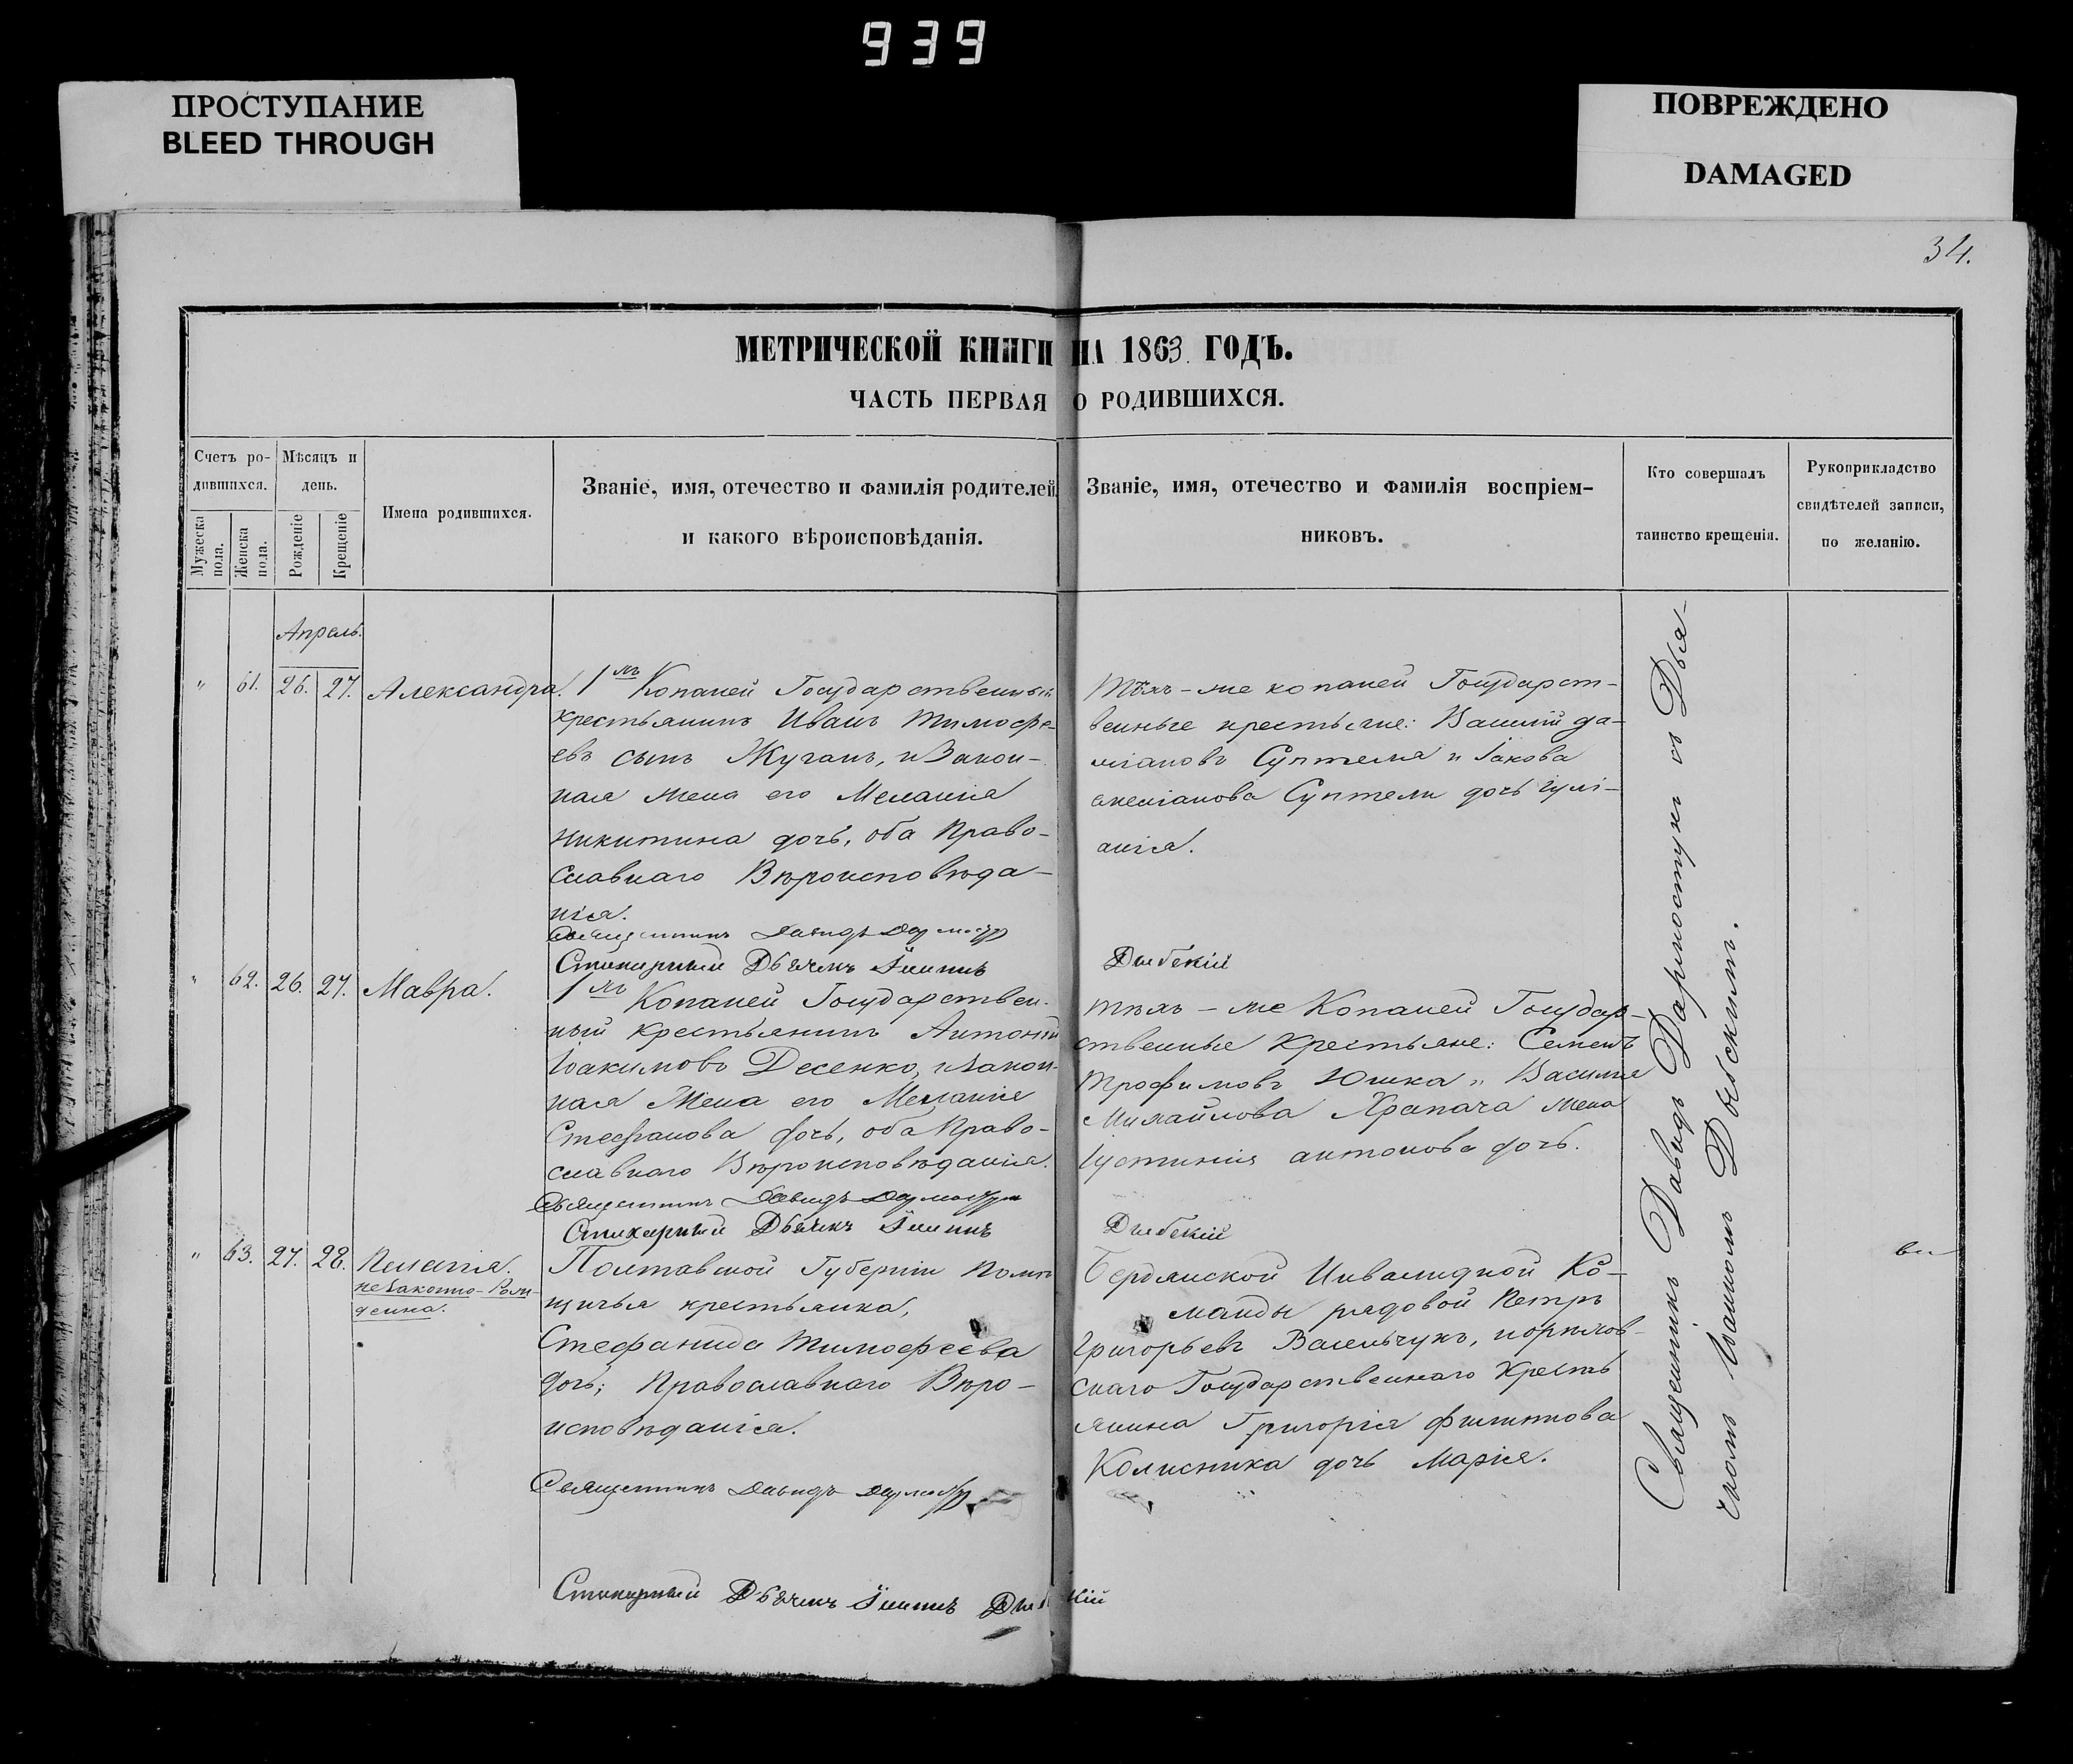 939
ПРОСТУПАНИЕ
BLEED THROUGH
ПОВРЕЖДЕНО
DAMAGED
34.
МЕТРИЧЕСКОЙ КНИГИ НА 1863 ГОДЪ.
ЧАСТЬ ПЕРВАЯ О РОДИВШИХСЯ.
Счетъ ро-
дившихся.
Мужеска
пола.
Женска
пола.
Мѣсяцъ и
день.
Рожденіе
Крещеніе
Имена родившихся.
Званіе, имя, отечество и фамилія родителей,
и какого вѣроисповѣданія.
Званіе, имя, отечество и фамилія воспріем-
никовъ.
Кто совершалъ
таинство крещенія.
Рукоприкладство
свидѣтелей записи,
по желанію.
Апрель.
" 61. 26. 27. Александра.
1хъ Копаней Государственный
крестьянинъ Иванъ Тимофе-
евъ сынъ Жуганъ, и Закон-
ная жена его Меланія
Никитина дочь, оба Право-
славнаго Вѣроисповѣда-
нія.
Священникъ Давидъ
Стихарный Дьячекъ Дыбскій
Тѣхъ-же копаней Государст-
венные крестьяне: Василій да-
міановъ Суптеля и Іакова
Суптели дочь Іулі-
анія.
" 62. 26. 27. Мавра.
1хъ Копаней Государствен-
ный крестьянинъ Антоній
Іоакимовъ Десенко, и Закон-
ная Жена его Меланія
Стефанова дочь, оба Право-
славнаго Вѣроисповѣданія.
Священникъ Давидъ
Стихарный Дьячекъ Дыбскій
тѣхъ-же Копаней Государ-
ственные Крестьяне: Семенъ
Трофимовъ Юшка, и Василія
Михайлова Храпача жена
Іустинія антонова дочь.
" 63. 27. 28. Пелагія.
незаконно-Рож-
денна.
Полтавской Губерніи Помѣ
щичья крестьянка,
Стефанида Тимофеева
дочь; Православнаго Вѣро-
исповѣданія.
Священникъ Давидъ
Стихарный Дьячекъ Дыбскій
Бердянской Инвалидной Ко-
манды рядовой Петръ
Григорьевъ Васильчукъ,
скаго Государственнаго Кресть
янина Григорія Филиппова
Колисника дочь Марія.
Священникъ Давидъ съ Дья-
чкомъ Дыбскимъ.